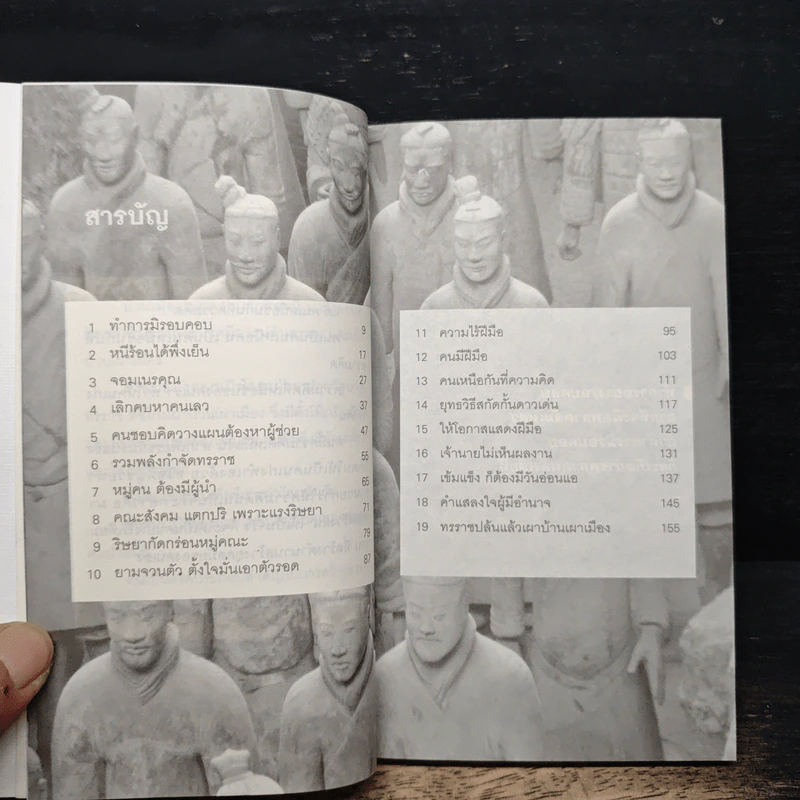 สารบัญ
1 ทำการมิรอบคอบ 9
2 หนีร้อนได้พึ่งเย็น 17
3 จอมเนรคุณ 27
4 เลิกคบหาคนเลว 37
5 คนชอบคิดวางแผนต้องหาผู้ช่วย 47
6 รวมพลังกำจัดทรราช 55
7 หมู่คน ต้องมีผู้นำ 65
8 คณะสังคม แตกปริ เพราะแรงริษยา 71
9 ริษยากัดกร่อนหมู่คณะ 79
10 ยามจวนตัว ตั้งใจมั่นเอาตัวรอด 87
11 ความไร้ฝีมือ 95
12 คนมีฝีมือ 103
13 คนเหนือกันที่ความคิด 111
14 ยุทธวิธีสกัดกั้นดาวเด่น 117
15 ให้โอกาสแสดงฝีมือ 125
16 เจ้านายไม่เห็นผลงาน 131
17 เข้มแข็ง ก็ต้องมีวันอ่อนแอ 137
18 คำแสลงใจผู้มีอำนาจ 145
19 ทรราชปล้นแล้วเผาบ้านเผาเมือง 155